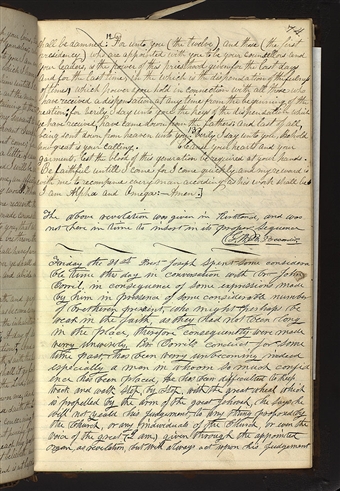 74
shall be damned. 12 For unto you (the twelve) and those (the first
presidency) who are appointed with you to be your counsellors and
your leaders, is the power of this priesthood given for the last days
and for the last time, in the which is the dispensation of the fulness
of times, which power you hold in connection with all those who
have received a dispensation at any time from the beginning of the
creation; for verily I say unto you the keys of the dispensation which
ye have received, have come down from the fathers and last of all
being sent down from heaven unto you. 13 Verily I say unto you, Behold
how great is your calling. Cleanse your heart and your
garments, lest the blood of this generation be required at your hands.
Be faithful untill I come for I come quickly and my reward is
with me to recompence every man according as his work shall be
I am Alpha and Omega:— Amen.
The above revelation was given in Kirtland, and was
not here in time to insert in its proper sequence
Sunday the Pres. Joseph Spent some considera-
ble time this day in conversation with br John
in consequence of some expressions made
by him in presence of some considerable number
of brethren present, who might perhaps be
weak in the faith, as they had not been long
in the place, therefore consequently were made
very unwisely, Br. conduct for some
time past has been very unbecoming indeed
especially a man in whoom so much confid-
ence has been placed. He has been difficulted to keep
back and walk step by step with the great wheel which
is propelled by the arm of the great Jehovah, he says he
will not yeald his Judgement to any thing proposed by
the Church, or any individuals of the Church, or even the
voice of the great (I am) given through the appointed
organ, as revelation, but will always act upon his Judgement